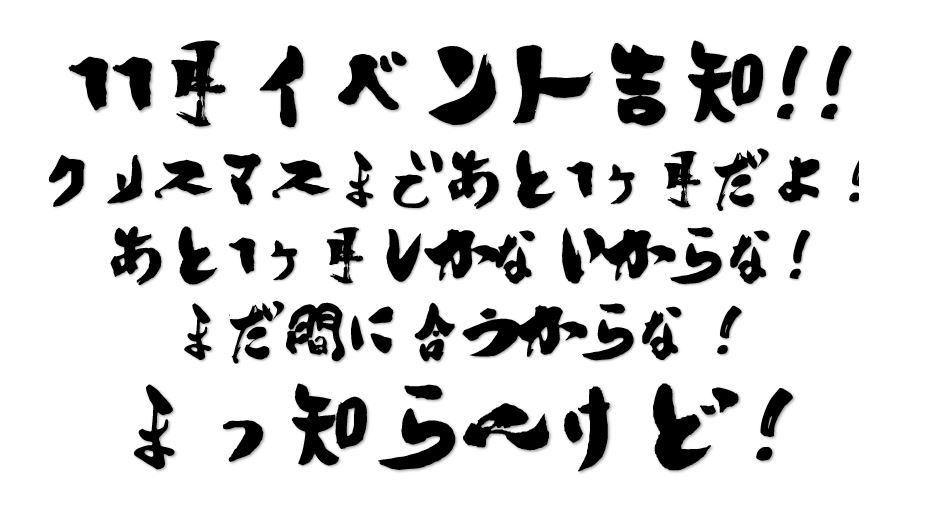 11月イベント告知!!
クリスマスまであと1ヶ月だよ!
あと1ヶ月しかないからな!
まだ間に合うからな!
まっ知ら〜けど!